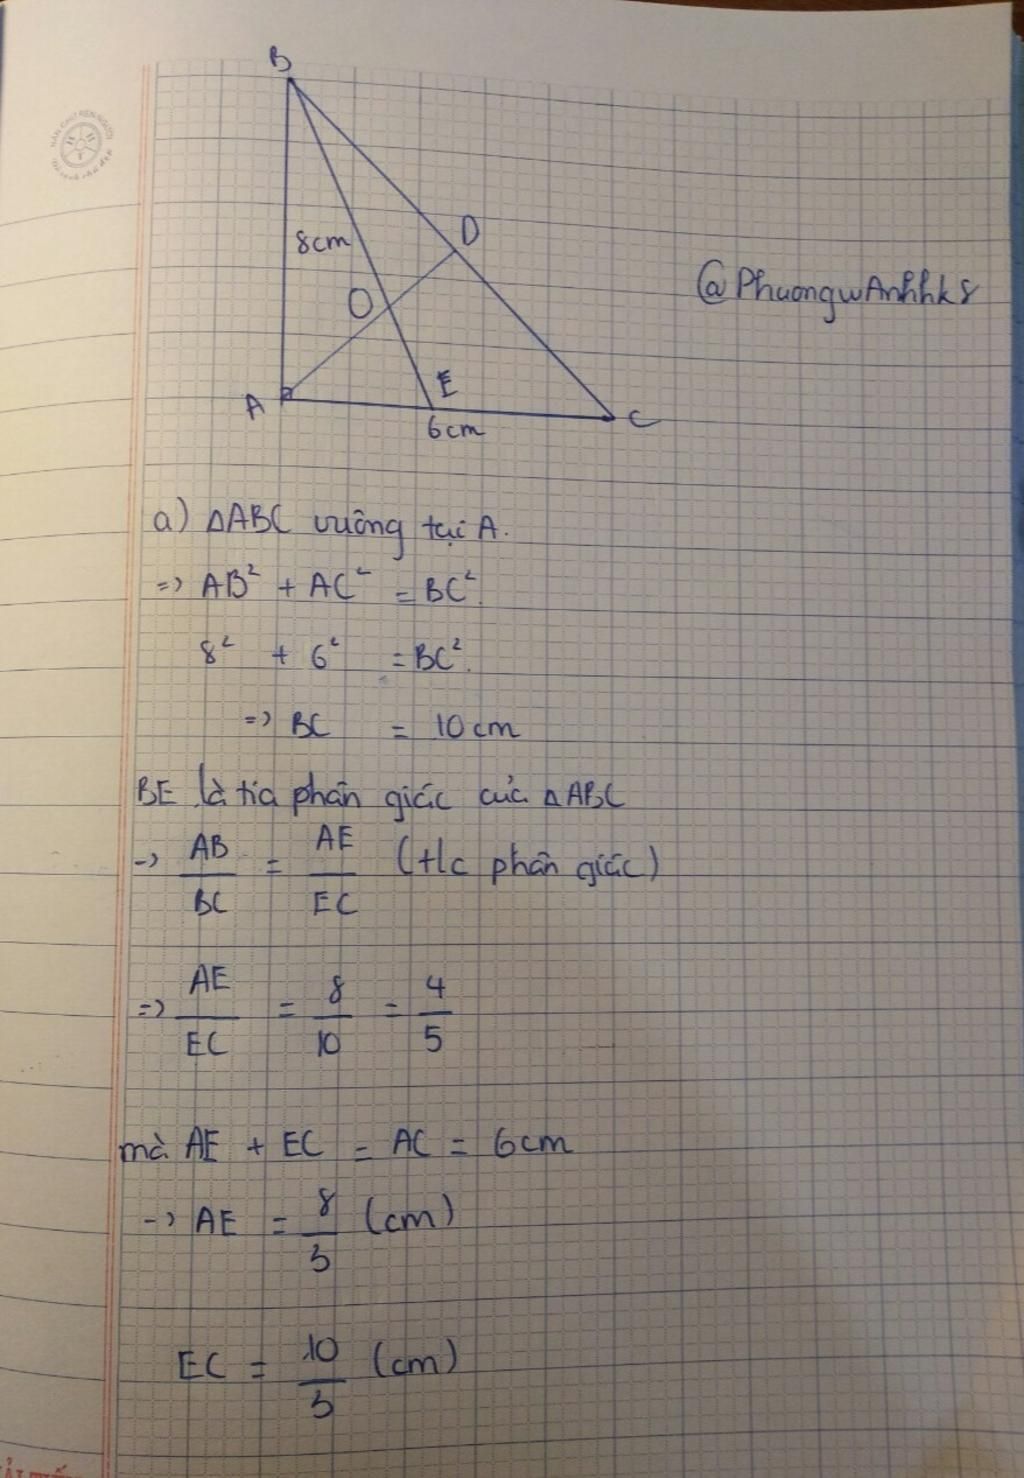 B
8cm
D
O
@PhuongwAnhhk8
A
E
C
6cm
a) ΔABC vuông tại A.
=> AB² + AC² = BC².
8² + 6² = BC².
=> BC = 10cm
BE là tia phân giác của ΔABC
-> AB/BC = AE/EC (t/c phân giác)
=> AE/EC = 8/10 = 4/5
mà AE + EC = AC = 6cm
-> AE = 8/3 (cm)
EC = 10/3 (cm)